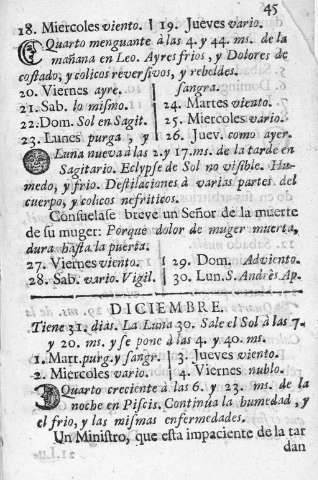 45
18. Miercoles viento. | 19. Jueves vario.
Quarto menguante à las 4. y 44. ms. de la
mañana en Leo. Ayres frios, y Dolores de
costado, y colicos reversivos, y rebeldes.
20. Viernes ayre. sangra.
21. Sab. lo mismo. 24. Martes viento.
22. Dom. Sol en Sagit. 25. Miercoles vario.
23. Lunes purga, y 26. Juev. como ayer.
Luna nueva à las 2. y 17. ms. de la tarde en
Sagitario. Eclypse de Sol no visible. Hu-
medo, y frio. Destilaciones à varias partes del
cuerpo, y colicos nefriticos.
Consuelase breve un Señor de la muerte
de su muger: Porque dolor de muger muerta,
dura hasta la puerta.
27. Viernes viento. | 29. Dom. Adviento.
28. Sab. vario. Vigil. | 30. Lun. S. Andrès Ap.
DICIEMBRE.
Tiene 31. dias. La Luna 30. Sale el Sol à las 7.
y 20. ms. y se pone à las 4. y 40. ms.
1. Mart. purg. y sangr. | 3. Jueves viento.
2. Miercoles vario. | 4. Viernes nublo.
Quarto creciente à las 6. y 23. ms. de la
noche en Piscis. Continúa la humedad, y
el frio, y las mismas enfermedades.
Un Ministro, que esta impaciente de la tar
dan